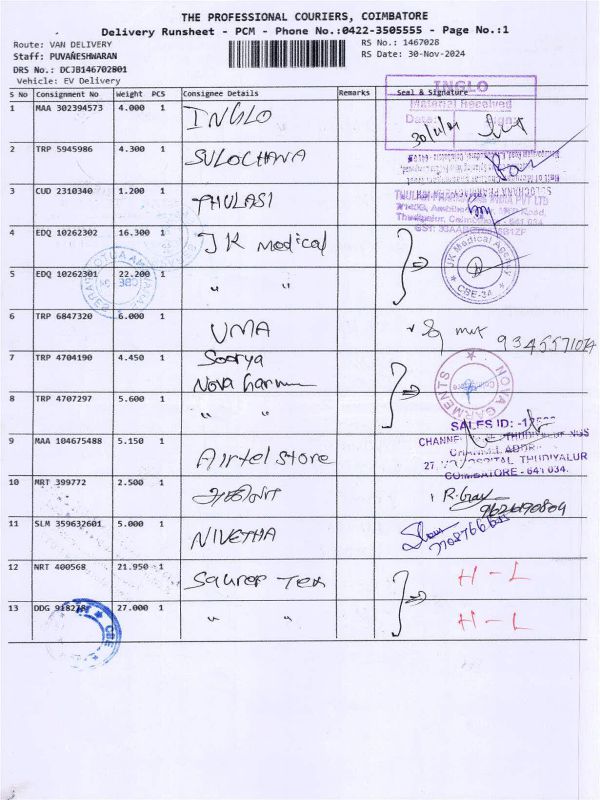 THE PROFESSIONAL COURIERS, COIMBATORE
Delivery Runsheet - PCM - Phone No.:0422-3505555 - Page No.:1
Route: VAN DELIVERY
RS No.: 1467028
Staff: PUVANESHWARAN
RS Date: 30-Nov-2024
DRS No.: DCJB146702801
Vehicle: EV Delivery
S No Consignment No Weight PCS Consignee Details Remarks Seal & Signature
1 MAA 302394573 4.000 1 INGLO
INGLO
Material Received
Date:
2 TRP 5945986 4.300 1 SULOCHANA
3 CUD 2310340 1.200 1 THULASI
THULASI PHARMACIES INDIA PVT LTD
4 EDQ 10262302 16.300 1 JK Medical
JK Medical Agency
CBE-34
5 EDQ 10262301 22.200 1 " "
6 TRP 6847320 6.000 1 UMA
7 TRP 4704190 4.450 1 Soorya
Nova
NOVA GARMENTS
8 TRP 4707297 5.600 1 " "
SALES ID:
9 MAA 104675488 5.150 1 Airtel Store
THUDIYALUR
COIMBATORE - 641 034.
10 MRT 399772 2.500 1
11 SLM 359632601 5.000 1 NIVETHA
12 NRT 400568 21.950 1 Tex
H - L
13 DDG 918278 27.000 1 " "
H - L
CBE